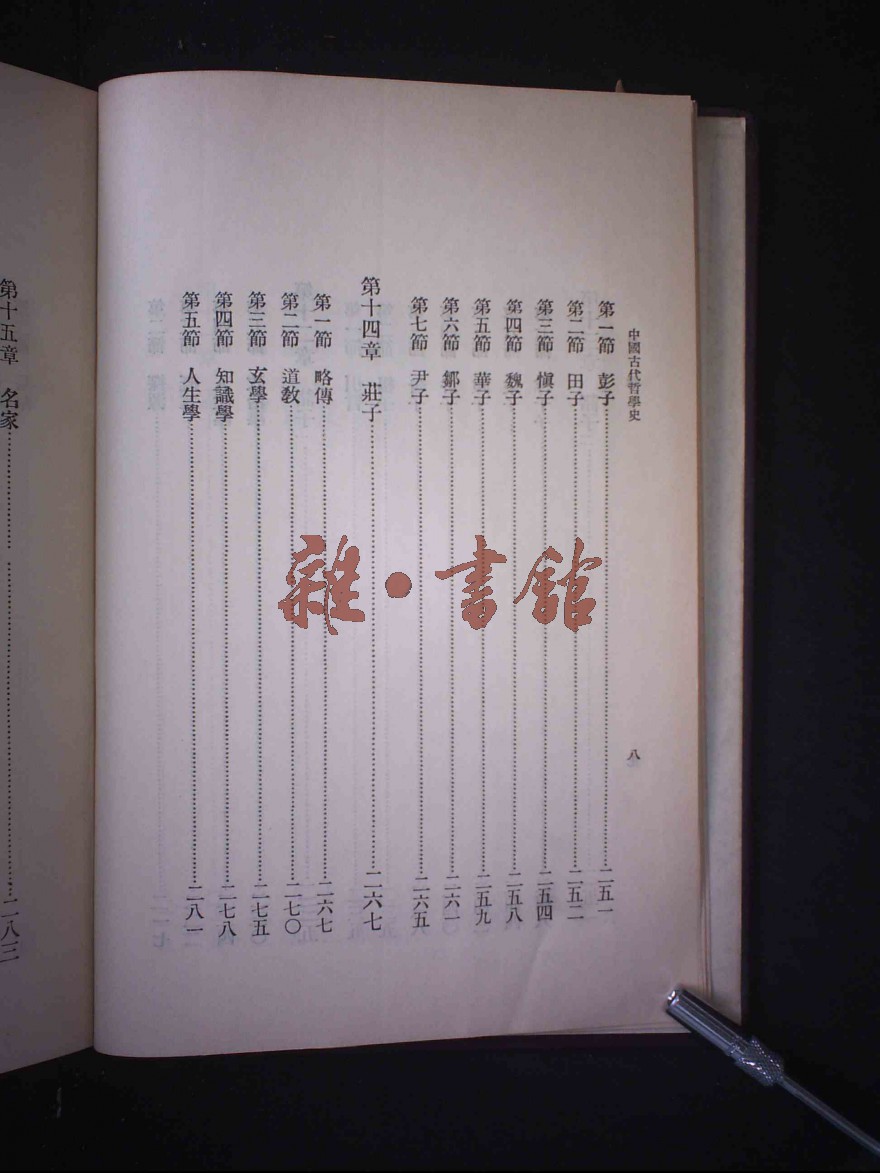 中國古代哲學史
八
第一節 彭子 二五一
第二節 田子 二五二
第三節 愼子 二五四
第四節 魏子 二五八
第五節 華子 二五九
第六節 鄒子 二六〇
第七節 尹子 二六五
第十四章 莊子 二六七
第一節 略傳 二六七
第二節 道敎 二七〇
第三節 玄學 二七五
第四節 知識學 二七八
第五節 人生學 二八一
第十五章 名家 二八三
雜·書館